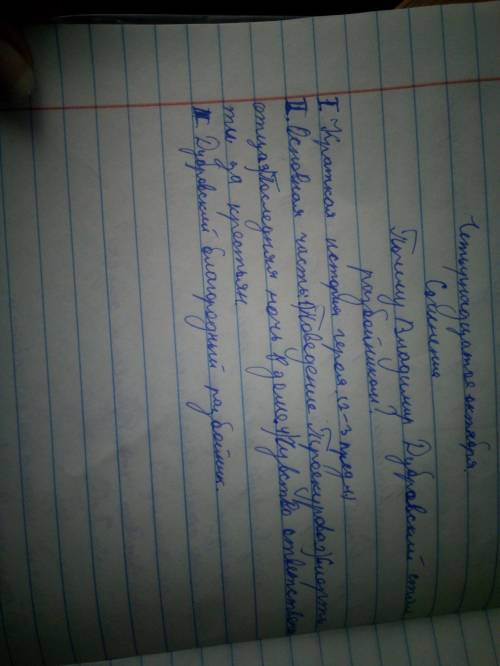 Четырнадцатое октября.
Сочинение
Почему Владимир Дубровский стал
разбойником?
I. Краткая история героя (2-3 пред-я)
II. Основная часть: 1) Поведение Троекурова 2) Смерть
отца 3) Последняя ночь в доме 4) Чувство ответствен
ти за крестьян.
III. Дубровский благородный разбойник.